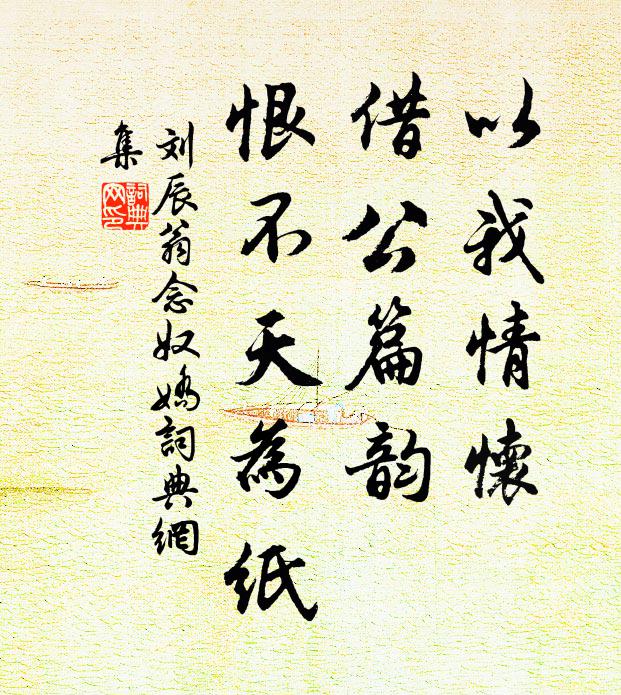 以我情懷
借公篇韵
恨不天為紙
刘辰翁念奴嬌詞典網
集
詞典
网印